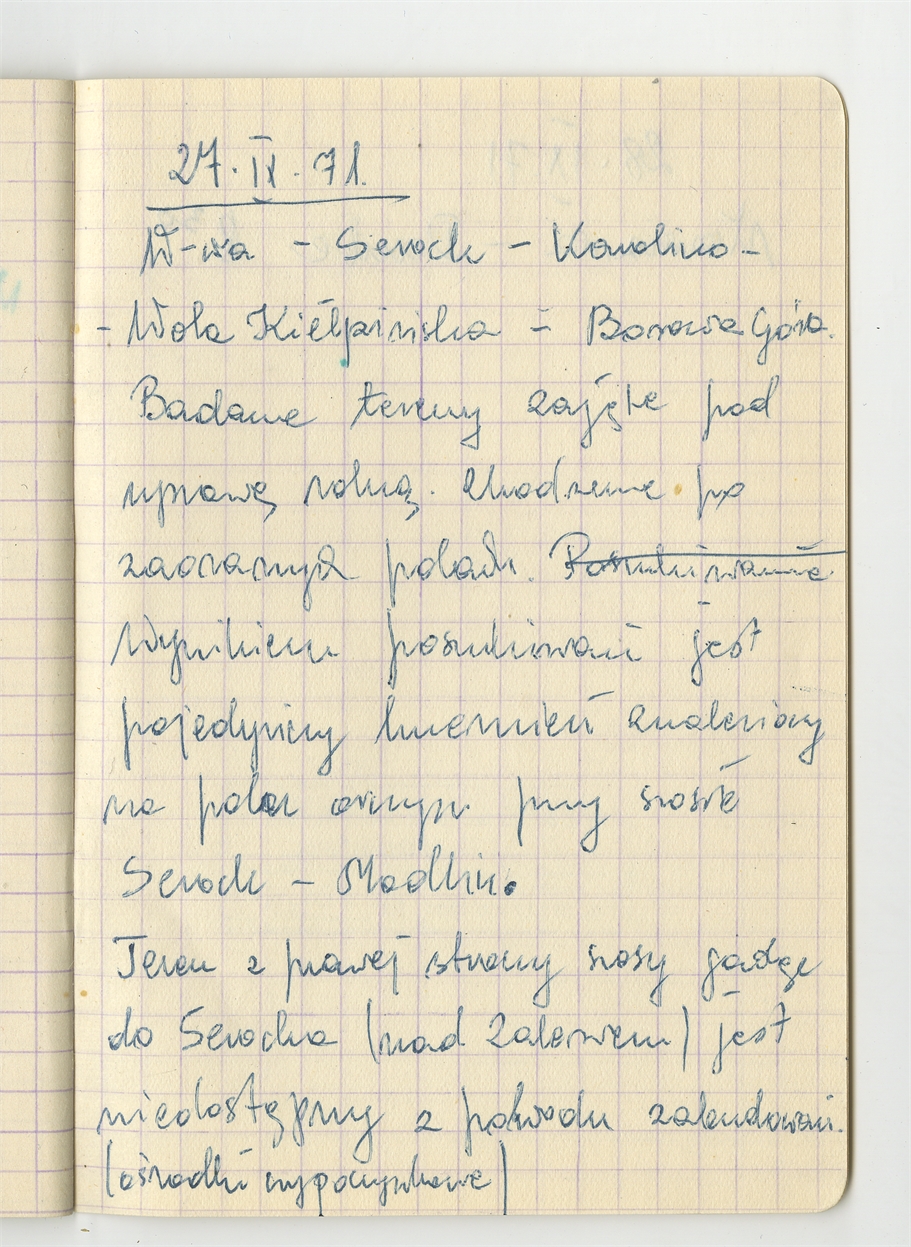 27.IX.71.
W-wa - Serock - Karolino -
- Wola Kiełpińska - Borowa Góra.
Badane tereny zajęte pod
uprawę rolną. Chodzenie po
zaoranych polach. Poszukiwanie
Wynikiem poszukiwań jest
pojedynczy krzemień znaleziony
na polu ornym przy szosie
Serock - Modlin.
Teren z prawej strony szosy jadąc
do Serocka (nad Zalewem) jest
niedostępny z powodu zabudowań.
(ośrodki wypoczynkowe)